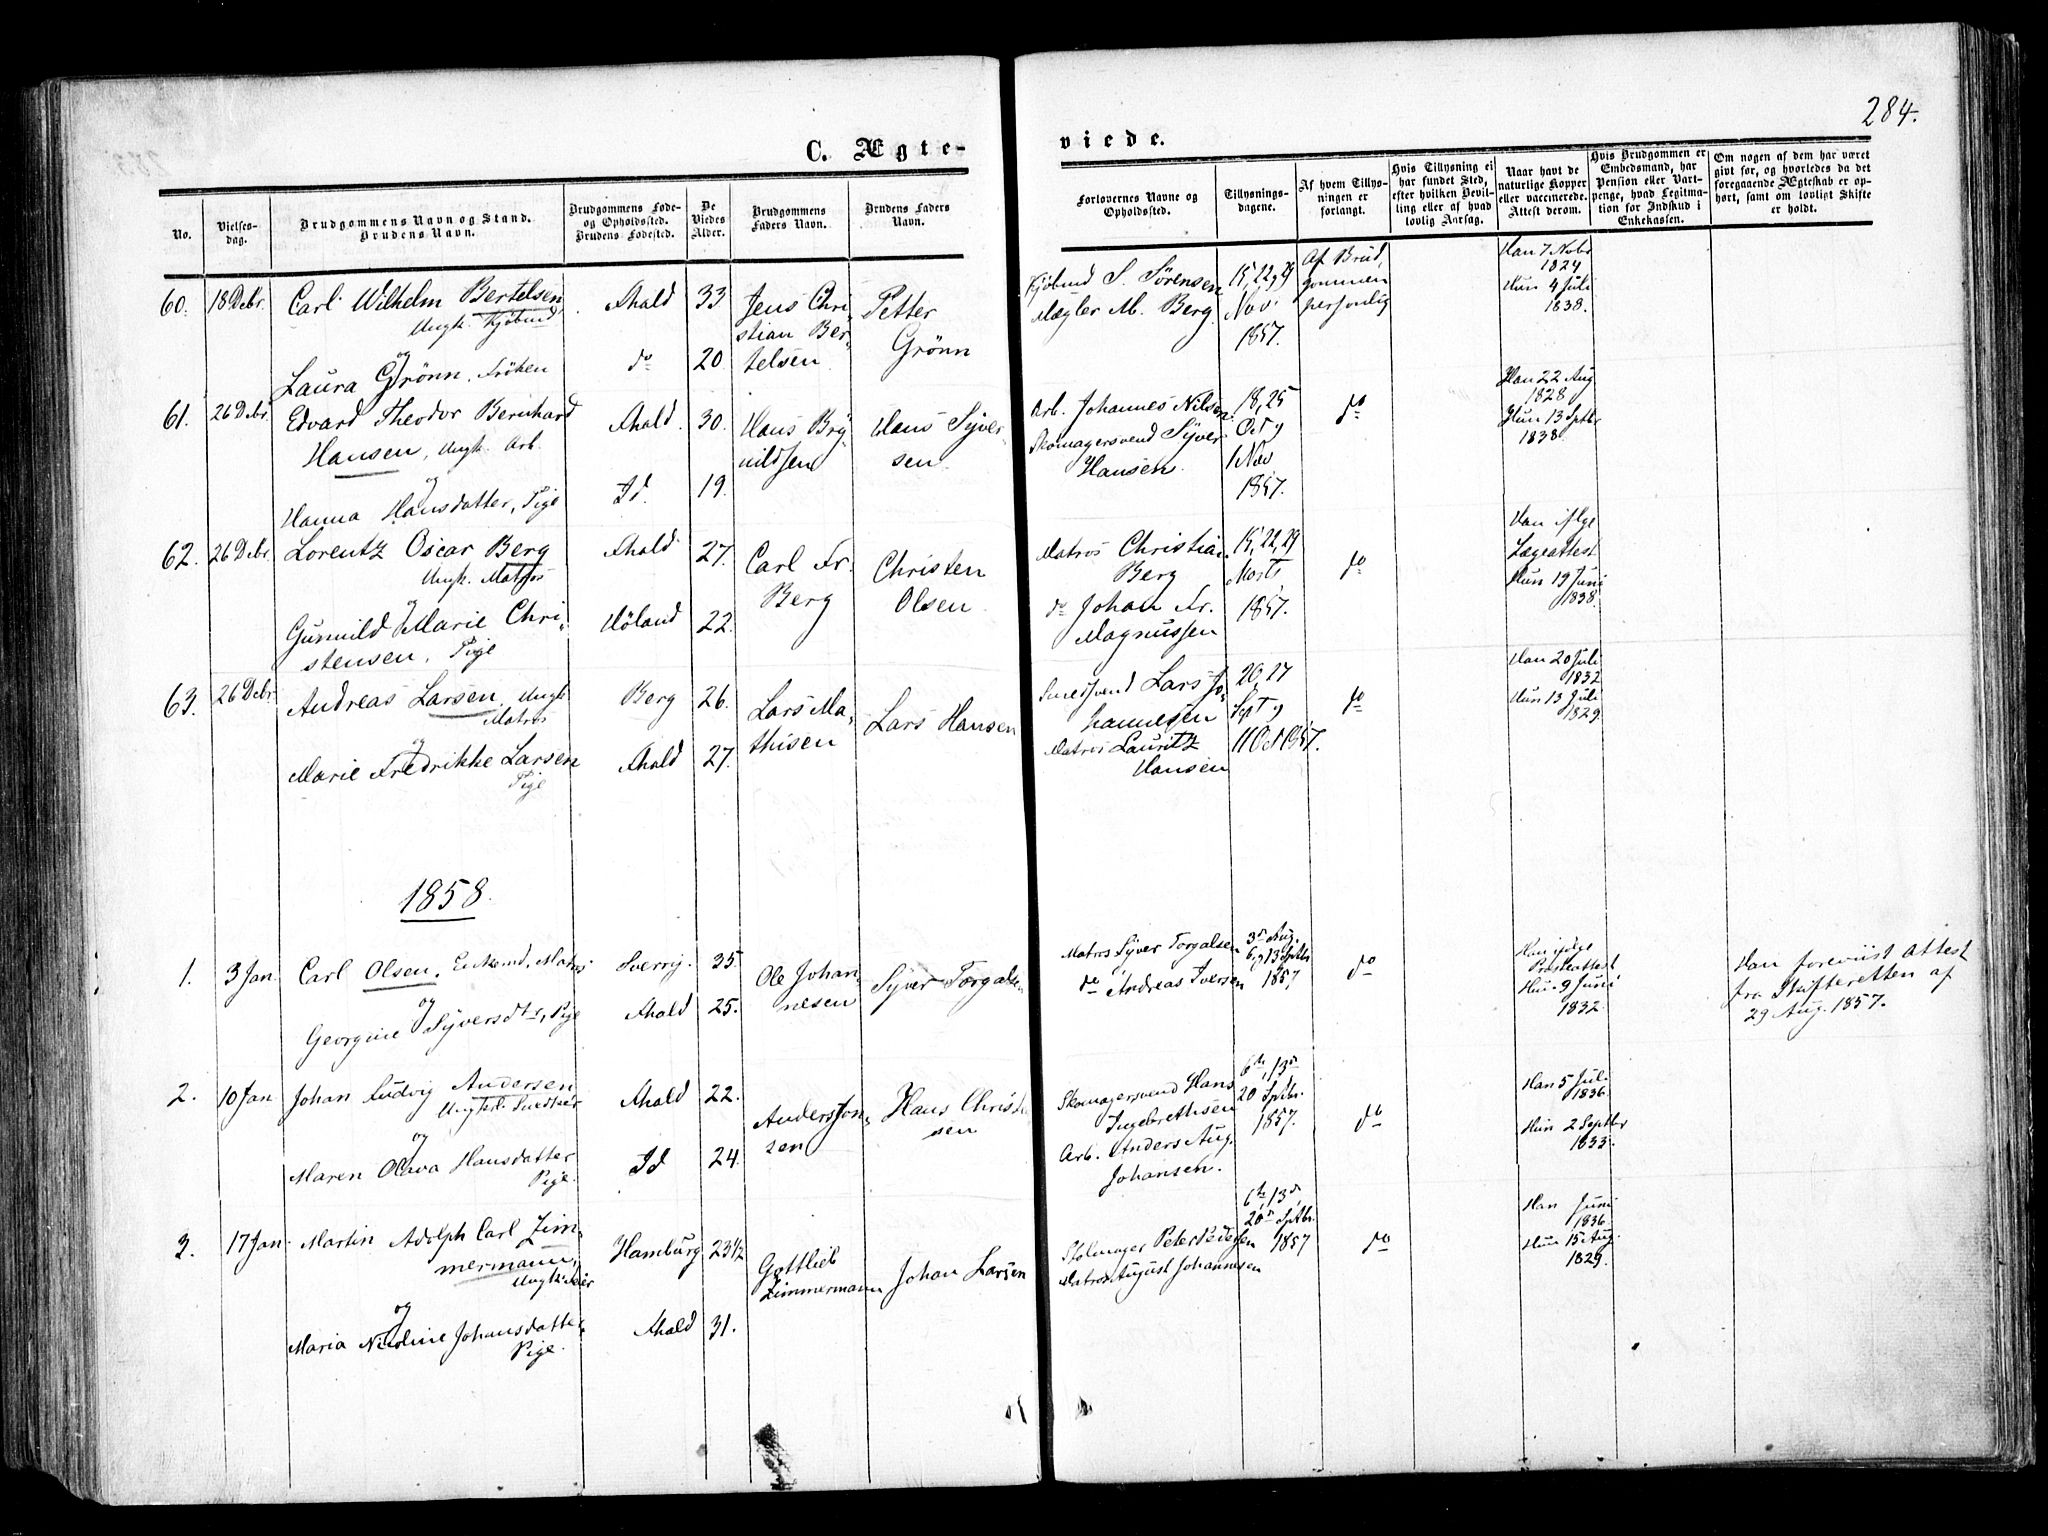 284.
C. Ægte-
viede.
No.
Vielses-
dag.
Brudgommens Navn og Stand.
Brudens Navn.
Brudgommens Føde-
og Opholdssted.
Brudens Fødested.
De
Viedes
Alder.
Brudgommens
Faders Navn.
Brudens Faders
Navn.
Forlovernes Navne og
Opholdssted.
Tillysnings-
dagene.
Af hvem Tillys-
ningen er
forlangt.
Hvis Tillysning ei
har fundet Sted,
efter hvilken Bevil-
ling eller af hvad
lovlig Aarsag.
Naar havt de
naturlige Kopper
eller vaccinerede.
Attest derom.
Hvis Brudgommen er
Embedsmand, har
Pension eller Vart-
penge, hvad Legitima-
tion for Indskud i
Enkekassen.
Om nogen af dem har været
givt før, og hvorledes da det
foregaaende Ægteskab er op-
hørt, samt om lovligt Skifte
er holdt.
60. 18 Debr. Carl Wilhelm Bertelsen
Ungk. Kjøbmd
og
Laura Grönn, Fröken
Ahald 33
do 20
Jens Chri-
stian Ber-
telsen
Petter
Grönn
Kjöbmd S. Sörensen
Mægler M. Berg
15, 22, 29
Nov.
1857.
Af Brud-
gommen
personlig
Han 7 Nobr
1824
Hun 4 Juli
1838.
61. 26 Debr. Edvard Theodor Bernhard
Hansen, Ungk. Arb.
og
Hanna Hansdatter, Pige
Ahald. 30.
Id. 19.
Hans Bry-
nildsen
Hans Syver-
sen.
Arb. Johannes Nilsen
Skomagersvend Syver
Hansen.
18, 25
Oct og
1 Nov
1857.
do
Han 22 Aug
1828
Hun 13 Sptbr
1838.
62. 26 Debr. Lorentz Oscar Berg
Ungk. Matros
og
Gunnild Marie Chri-
stensen, Pige
Ahald 27.
Höland 22.
Carl Fr.
Berg
Christen
Olsen.
Matros Christian
Berg
do Johan Fr.
Magnussen
15, 22, 29
Marts
1857.
do
Han ifölge
Lægeattest
Hun 19 Juni
1838.
63. 26 Debr. Andreas Larsen, Ungk
Matros
og
Marie Fredrikke Larsen
Pige
Berg 26.
Ahald 27.
Lars Ma-
thisen
Lars Hansen
Smedsvend Lars Jo-
hannesen
Matros Lauritz
Hansen
20, 27
Sept og
11 Oct 1857.
do
Han 20 Juli
1832
Hun 13 Juli
1829.
1858.
1. 3 Jan. Carl Olsen, Enkemd, Matros
og
Georgine Syversdtr, Pige
Sverrig. 35.
Ahald 25.
Ole Johan-
nesen
Syver Torgalsen
Matros Syver Torgalsen
do Andreas Iversen
3die Aug.
6, og 13 Sptbr.
1857
do
Han ifölge
Presteattest
Hun 9 Juni
1832.
Han foreviist Attest
fra Skifteretten af
29 Aug. 1857.
2. 10 Jan Johan Ludvig Andersen
Ungkl. Snedker
og
Maren Olava Hansdatter
Pige.
Ahald 22.
Id 24.
Anders Jon-
sen
Hans Christen-
sen
Skomagersvend Hans
Ingebrethsen
Arb. Anders Aug.
Johansen.
6te, 13de
20 Sptbr.
1857.
do
Han 5 Juli
1836.
Hun 2 Septbr
1833.
3. 17 Jan. Martin Adolph Carl Zim-
mermann,
og
Maria Nicoline Johansdatter
Pige.
Hamburg 23 1/2
Ahald 31.
Gottlieb
Zimmermann
Johan Larsen
Stolmager Peter Pedersen
Matros August Johannesen
6te, 13de
20de Sptbr.
1857
do
Han Juni
1836.
Hun 15 Aug.
1829.